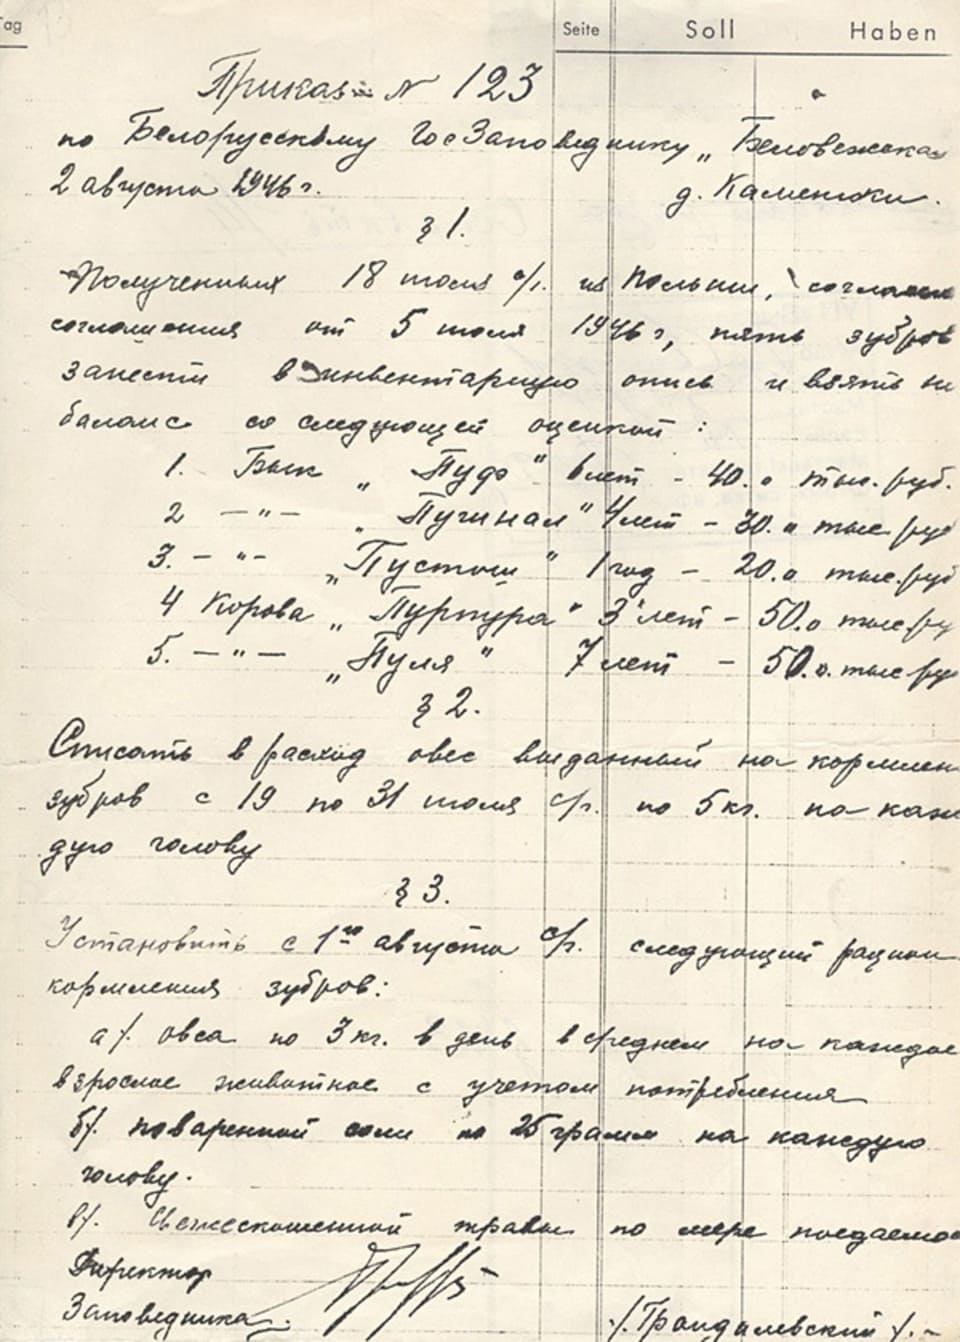 Tag
Seite Soll Haben
Приказ № 123
по Белорусскому ГосЗаповеднику „Беловежская
2 августа 1946 г. д. Каменюки.
§ 1.
Полученных 18 июля с/г. из Польши, согласно
соглашения от 5 июля 1946 г, пять зубров
занести в инвентарную опись и взять на
баланс со следующей оценкой:
1. Бык „Пудз" 6 лет - 40.0 тыс. руб.
2 —"— „Пугинал" 4 лет - 30.0 тыс ру
3. —"— „Пустош" 1 год - 20.0 тыс. руб
4 Корова „Пурпура" 3 лет - 50.0 тыс ру
5. —"— „Пуля" 7 лет - 50.0. тыс ру
§ 2.
Списать в расход овес выданный на кормлен
зубров с 19 по 31 июля с/г. по 5 кг. на каж
дую голову
§ 3.
Установить с 1го августа с/г. следующий рацион
кормления зубров:
а/. овса по 3 кг. в день в среднем на каждое
взрослое животное с учетом потребления
б/. поваренной соли по 25 грамм на каждую
голову.
в/. Свежескошенной травы по мере поедаемос
Директор
Заповедника